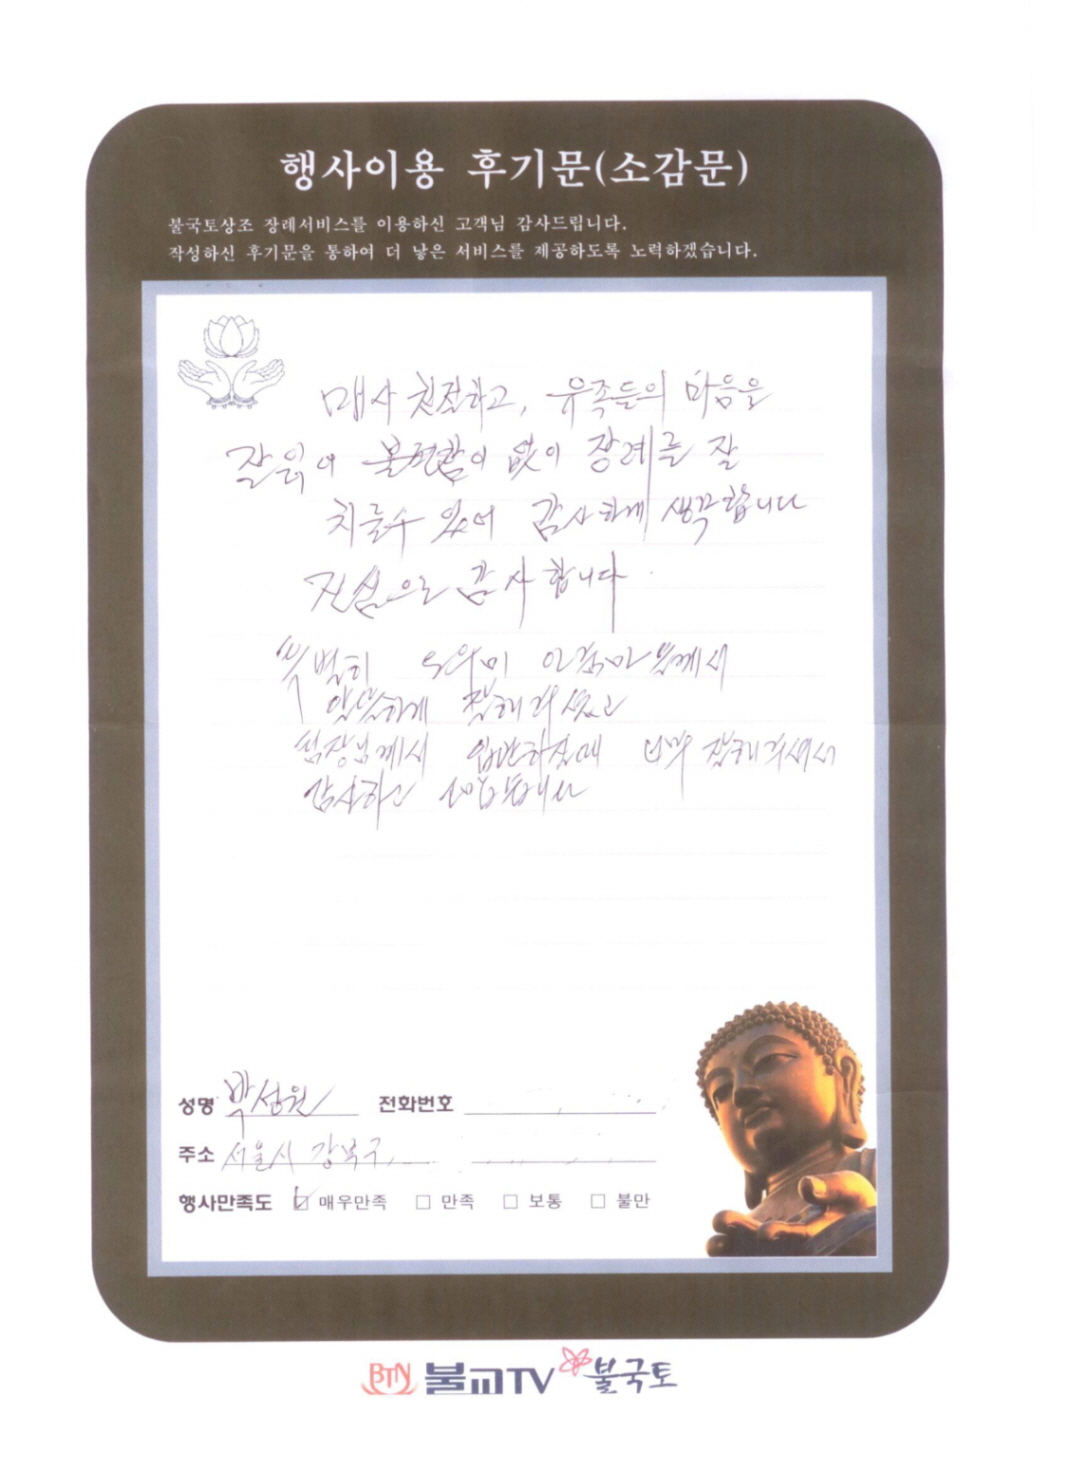 행사이용 후기문(소감문)
불국토상조 장례서비스를 이용하신 고객님 감사드립니다.
작성하신 후기문을 통하여 더 낳은 서비스를 제공하도록 노력하겠습니다.
매사 친절하고, 유족들의 마음을
잘 읽어 불편함이 없이 장례를 잘
치를수 있어 감사하게 생각합니다
진심으로 감사합니다.
특별히 도우미 아줌마분께서
잘해주셨고
팀장님께서 너무 잘해주셔서
감사하고
성명 박성원 전화번호
주소 서울시 강북구,
행사만족도 ☑ 매우만족 □ 만족 □ 보통 □ 불만
BTN 불교TV 불국토